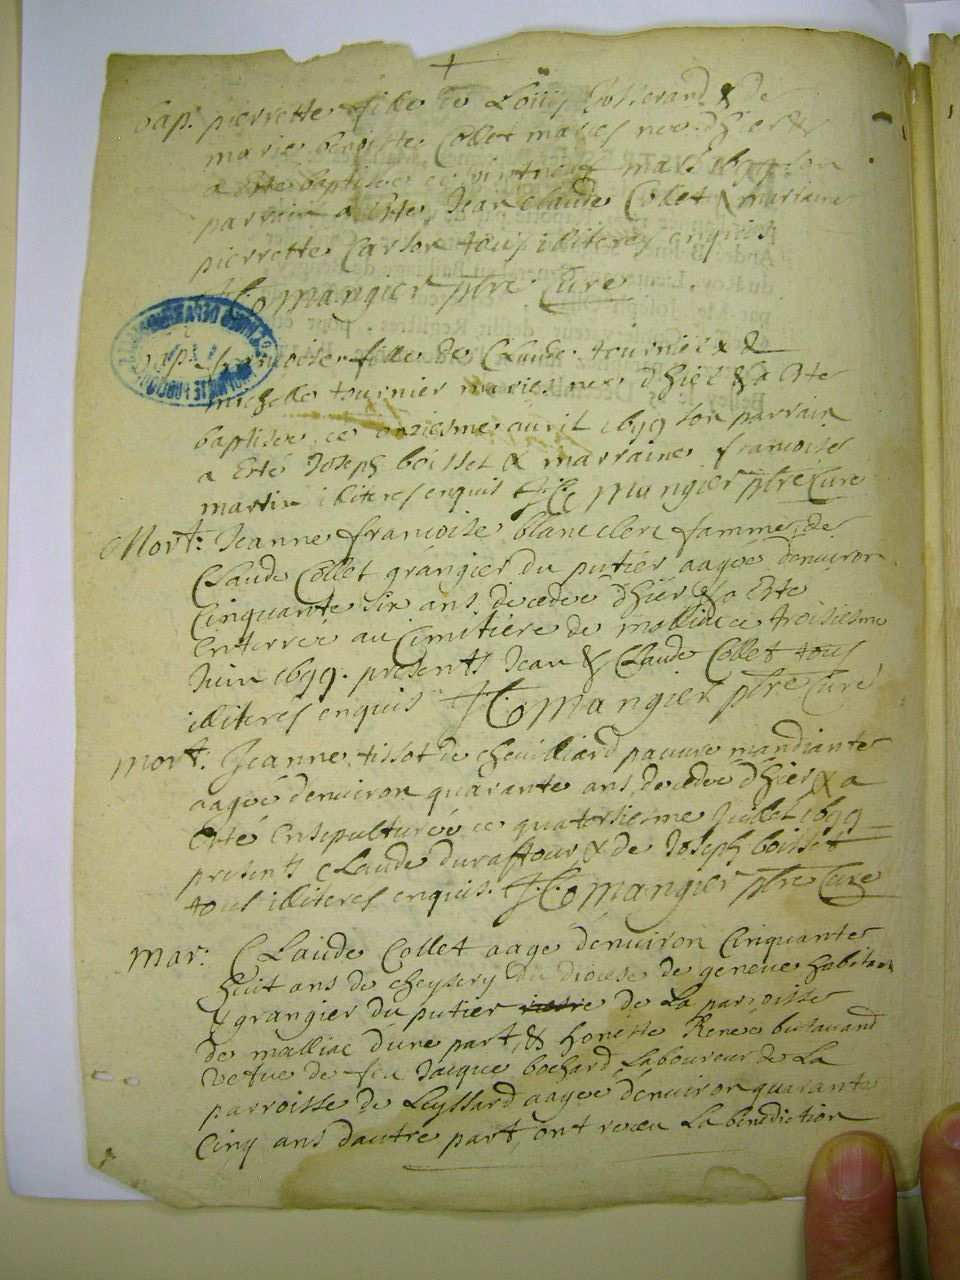 bap. pierrette fille de Louis Josserand & de
marie benoitte Collet maries nee d'hier &
a este baptisee ce vintneuf mars 1699 son
parrain a este Jean Claude Collet & marraine
pierrette Carlon tous illiteres enquis
Mangier ptre Curé
bap. francoise fille de Claude tournier & de
michelle tournier maries nee d'hier & a este
baptisee ce onziesme auril 1699 son parrain
a esté Joseph boisset & marraine francoise
martin illiteres enquis Mangier ptre Curé
Mort: Jeanne francoise blanc clerc famme de
Claude Collet grangier du putier aagée denuiron
Cinquante six ans decedee d'hier & a este
enterrée au Cimitiere de molliac ce troisiesme
Juin 1699. presents Jean & Claude Collet tous
illiteres enquis Mangier ptre Curé
mort: Jeanne tissot de cheuilliard pauure mandiante
aagee denuiron quarante ans decedee d'hier & a
esté ensepulturée ce quatorsiesme Juillet 1699
presents Claude duraffour & de Joseph boisset
tous illiteres enquis. Mangier ptre Curé
mar: Claude Collet aage denuiron Cinquante
huit ans de cheysery du diocese de geneue habitan
& grangier du putier de La parroisse
de malliac dune part, & honeste Renee
vefue de feu Jacque bochard Laboureur de La
parroisse de Leyssard aagee denuiron quarante
Cinq ans dautre part, ont receu La benediction